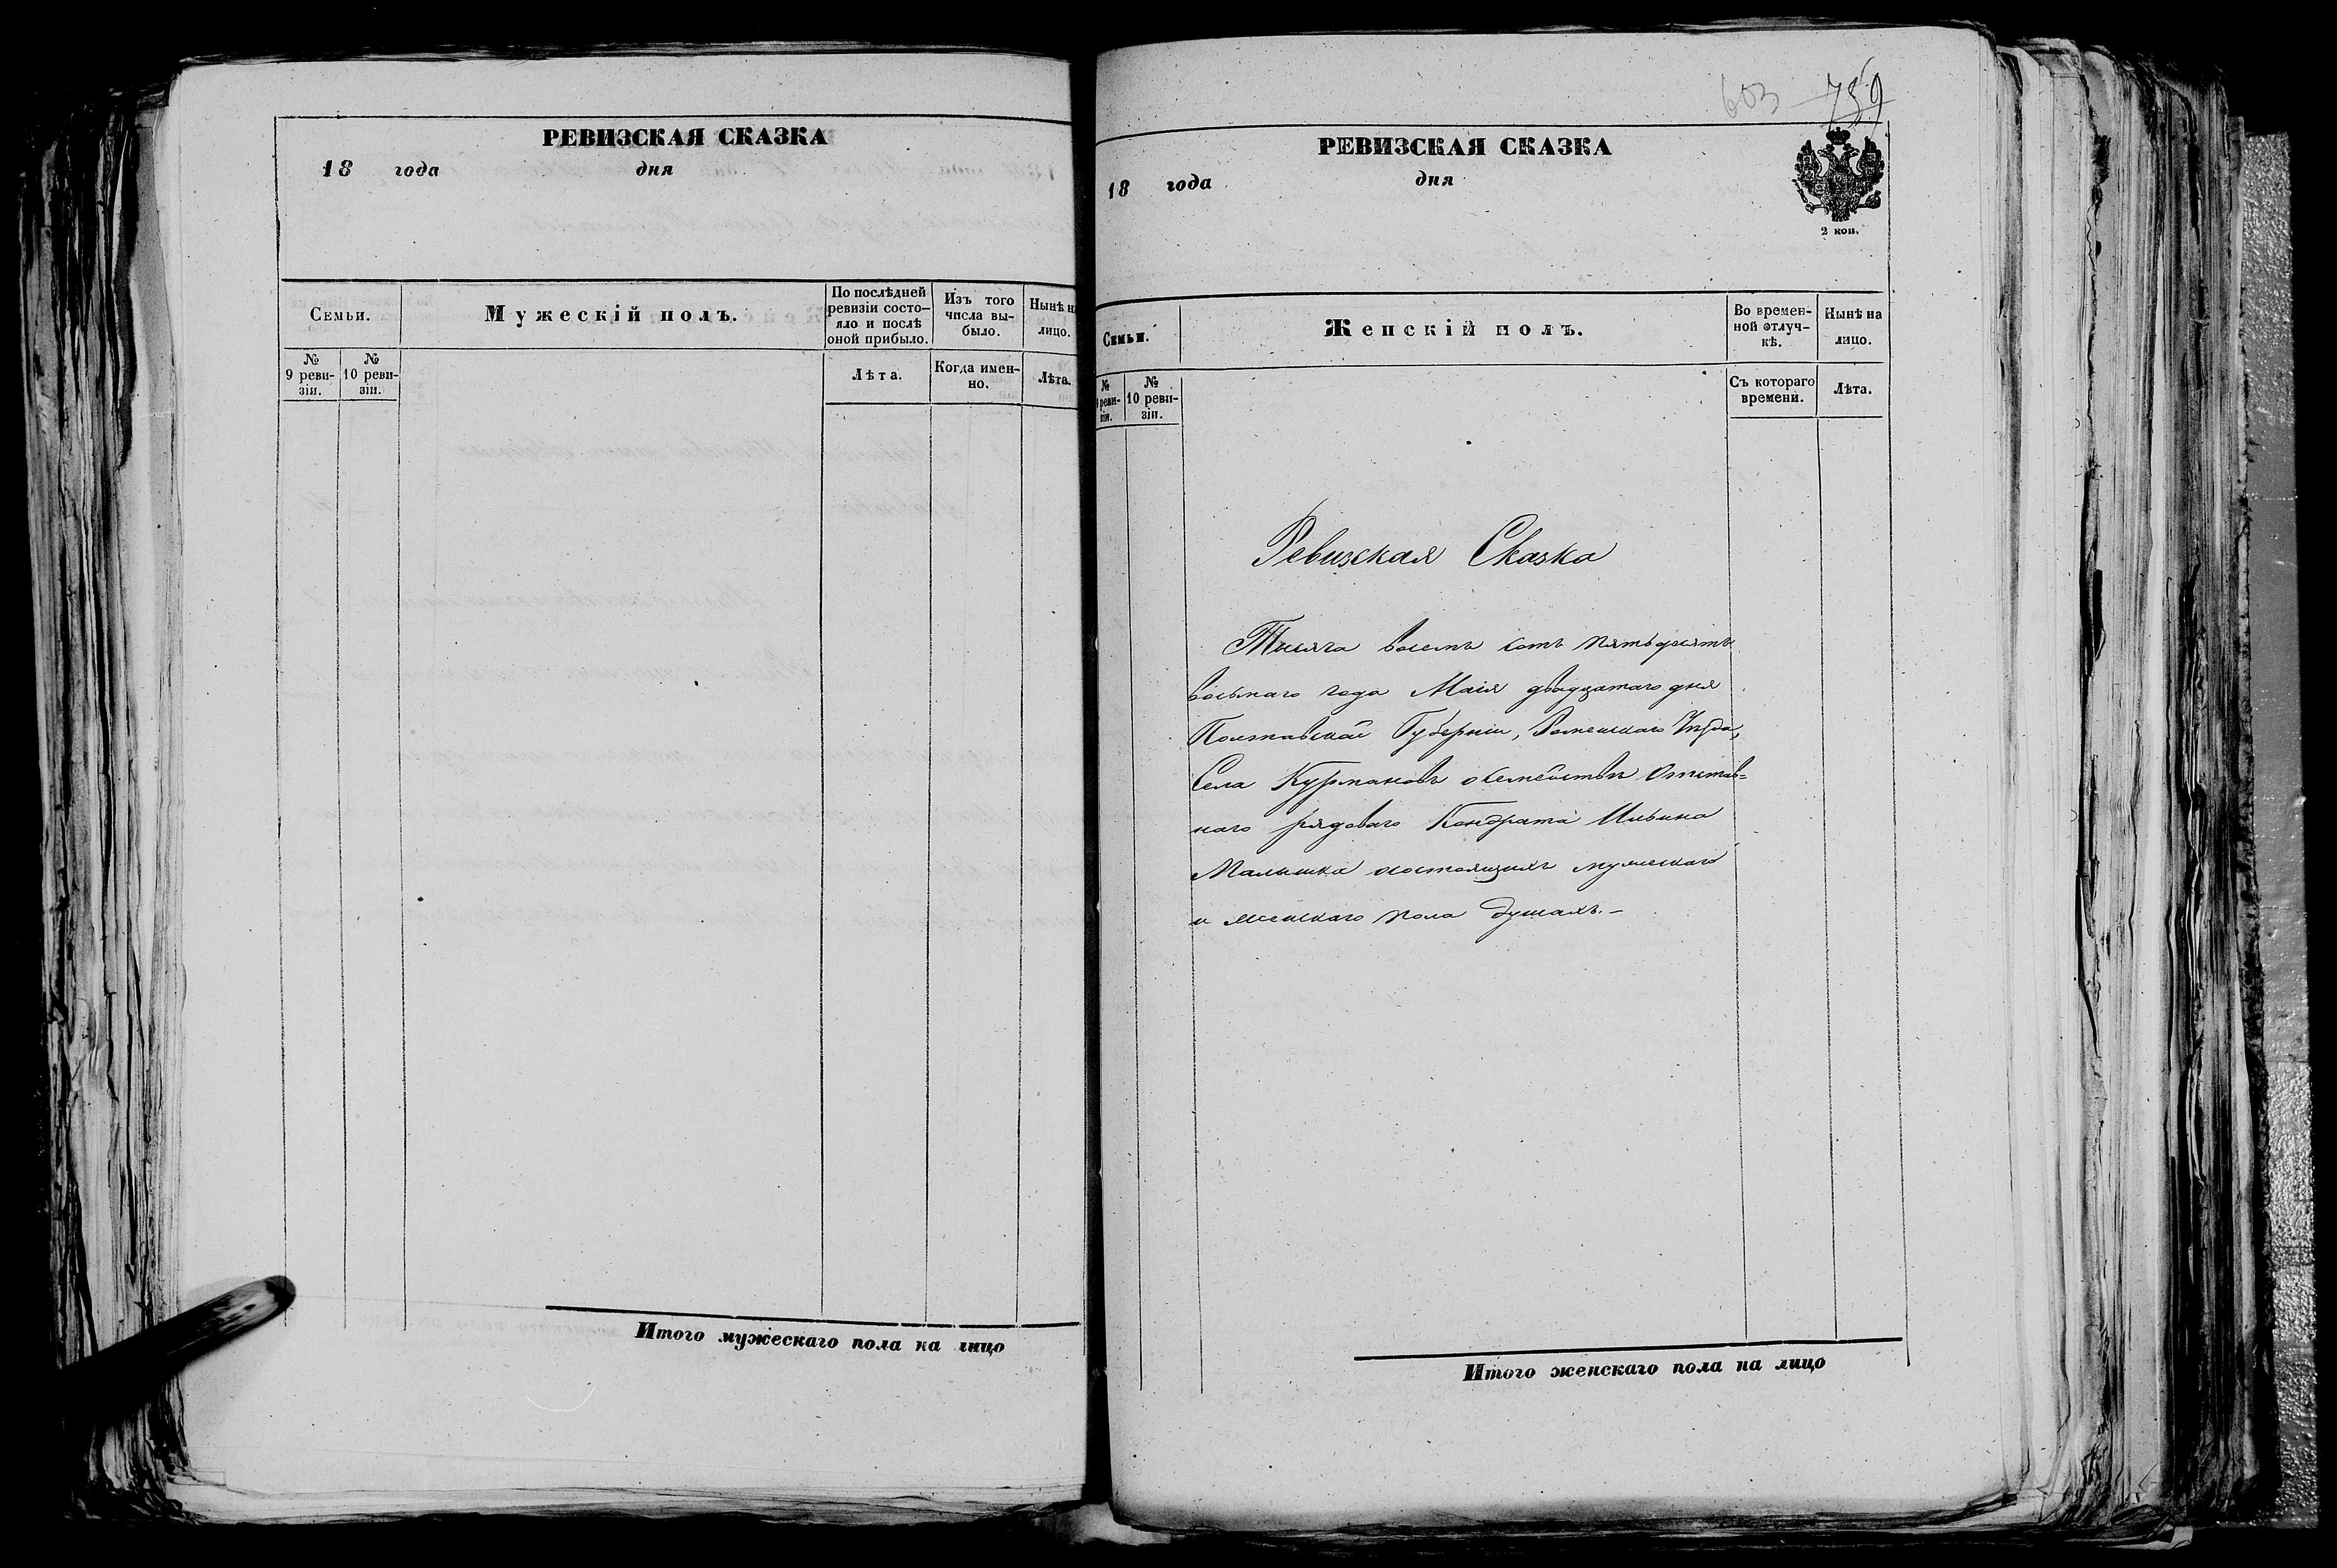 РЕВИЗСКАЯ СКАЗКА
18 года дня
Семьи.
Мужескій полъ.
По послѣдней ревизіи состо-
яло и послѣ оной прибыло.
Изъ того числа вы-
было.
Нынѣ на лицо.
№ 9 реви-
зіи.
№ 10 реви-
зіи.
Лѣта.
Когда имен-
но.
Лѣта.
Итого мужескаго пола на лицо
603 759
РЕВИЗСКАЯ СКАЗКА
18 года дня
2 коп.
Семьи.
Женскій полъ.
Во времен-
ной отлуч-
кѣ.
Нынѣ на лицо.
№ реви-
зіи.
№ 10 реви-
зіи.
Съ котораго времени.
Лѣта.
Ревизская Сказка
Тысяча восемь сотъ пятьдесятъ
восьмаго года Маія двадцатаго дня
Полтавской Губерніи, Роменскаго Уѣзда,
Села Курмановъ о семействѣ Отстав=
наго рядоваго Кондрата Ильина
Малышка состоящихъ мужескаго
и женскаго пола душахъ.-
Итого женскаго пола на лицо